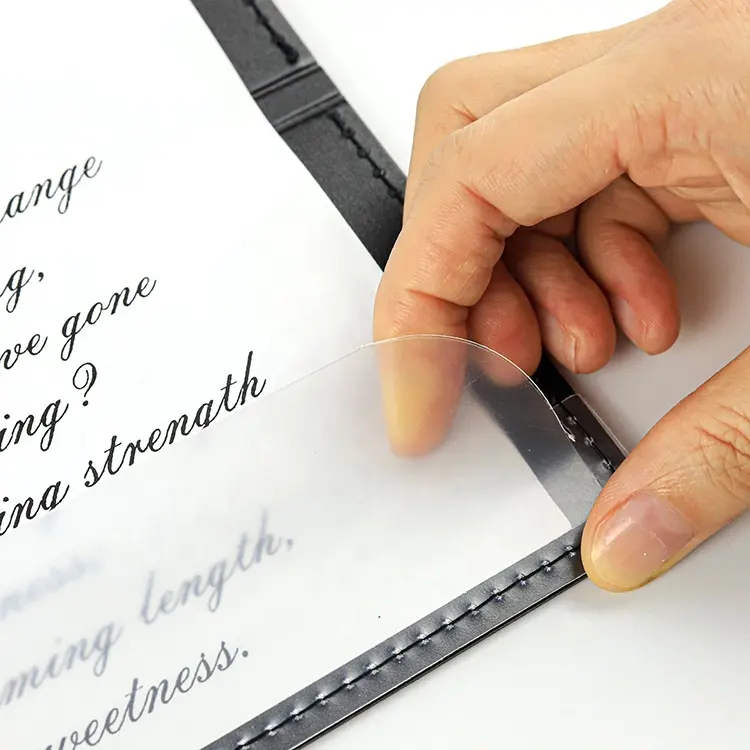 ange
g,
ve gone
ing?
ing strength
ness
ming length,
weetness.